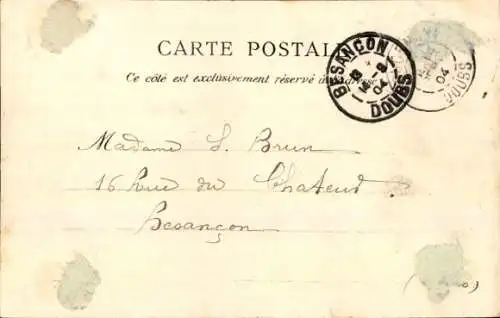 CARTE POSTALE
Ce côté est exclusivement réservé à l'adresse
BESANÇON
8
04
DOUBS
04
DOUBS
Madame S. Brun
16 Rue du Chateud
Besançon